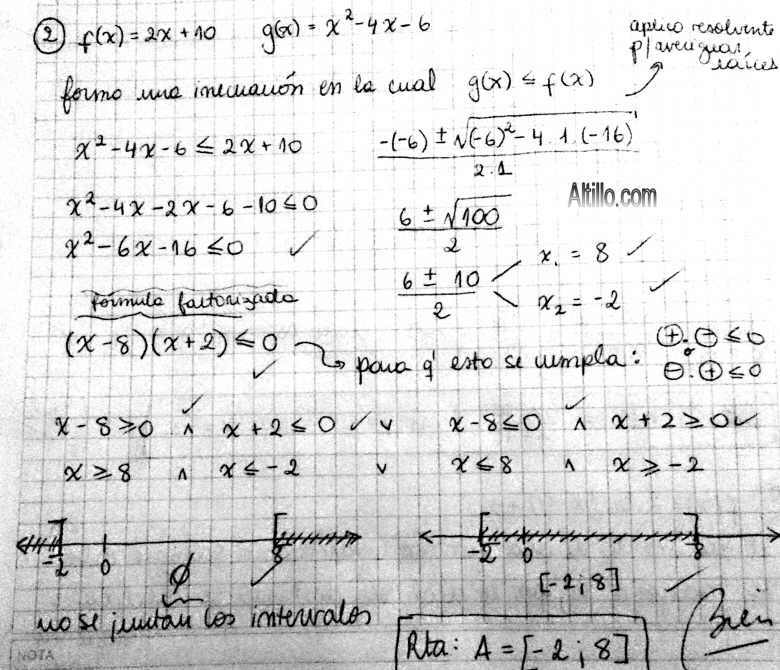 ② f(x) = 2x + 10   g(x) = x² - 4x - 6
aplico resolvente
p/ averiguar
raíces
formo una inecuación en la cual g(x) ≤ f(x)
x² - 4x - 6 ≤ 2x + 10
-(-6) ± √(-6)² - 4 . 1 . (-16)
2 . 1
Altillo.com
x² - 4x - 2x - 6 - 10 ≤ 0
6 ± √100
2
x² - 6x - 16 ≤ 0 ✓
6 ± 10
2
x₁ = 8 ✓
x₂ = -2 ✓
fórmula factorizada
(x - 8)(x + 2) ≤ 0 ✓
para q' esto se cumpla:
⊕ . ⊖ ≤ 0
o
⊖ . ⊕ ≤ 0
x - 8 ≥ 0 ✓ ∧ x + 2 ≤ 0 ✓ ∨ x - 8 ≤ 0 ✓ ∧ x + 2 ≥ 0 ✓
x ≥ 8 ∧ x ≤ -2 ∨ x ≤ 8 ∧ x ≥ -2
-2 0 8
-2 0 8
∅ ✓
[-2 ; 8] ✓
no se juntan los intervalos
Rta: A = [-2 ; 8]
Bien
NOTA